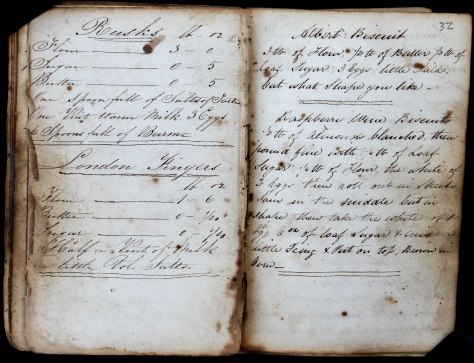 Rusks
lb - oz
Flour 3 - 0
Sugar 0 - 5
Butter 0 - 5
One Spoonfull of Salts of
One Pint Warm Milk 3 Eggs
6 Spoons full of Barm
London Fingers
lb - oz
Flour 1 - 6
Butter 0 -
Sugar 0 -
Half a Pint of Milk
little Vol. Salts.
32
Albert Biscuit
3 lb of Flour, lb of Butter lb of
loaf Sugar 3 Eggs, little Milk,
but what Shape you like
Raspberry Biscuit
lb of Almonds blanched then
pound fine with lb of Loaf
Sugar lb of Flour, the white of
3 Eggs then roll out in sheets
Jam in the middle but in
shape then take the white of 1
Egg 6 oz of loaf Sugar &
little Icing & Put on top, Brown in
Oven